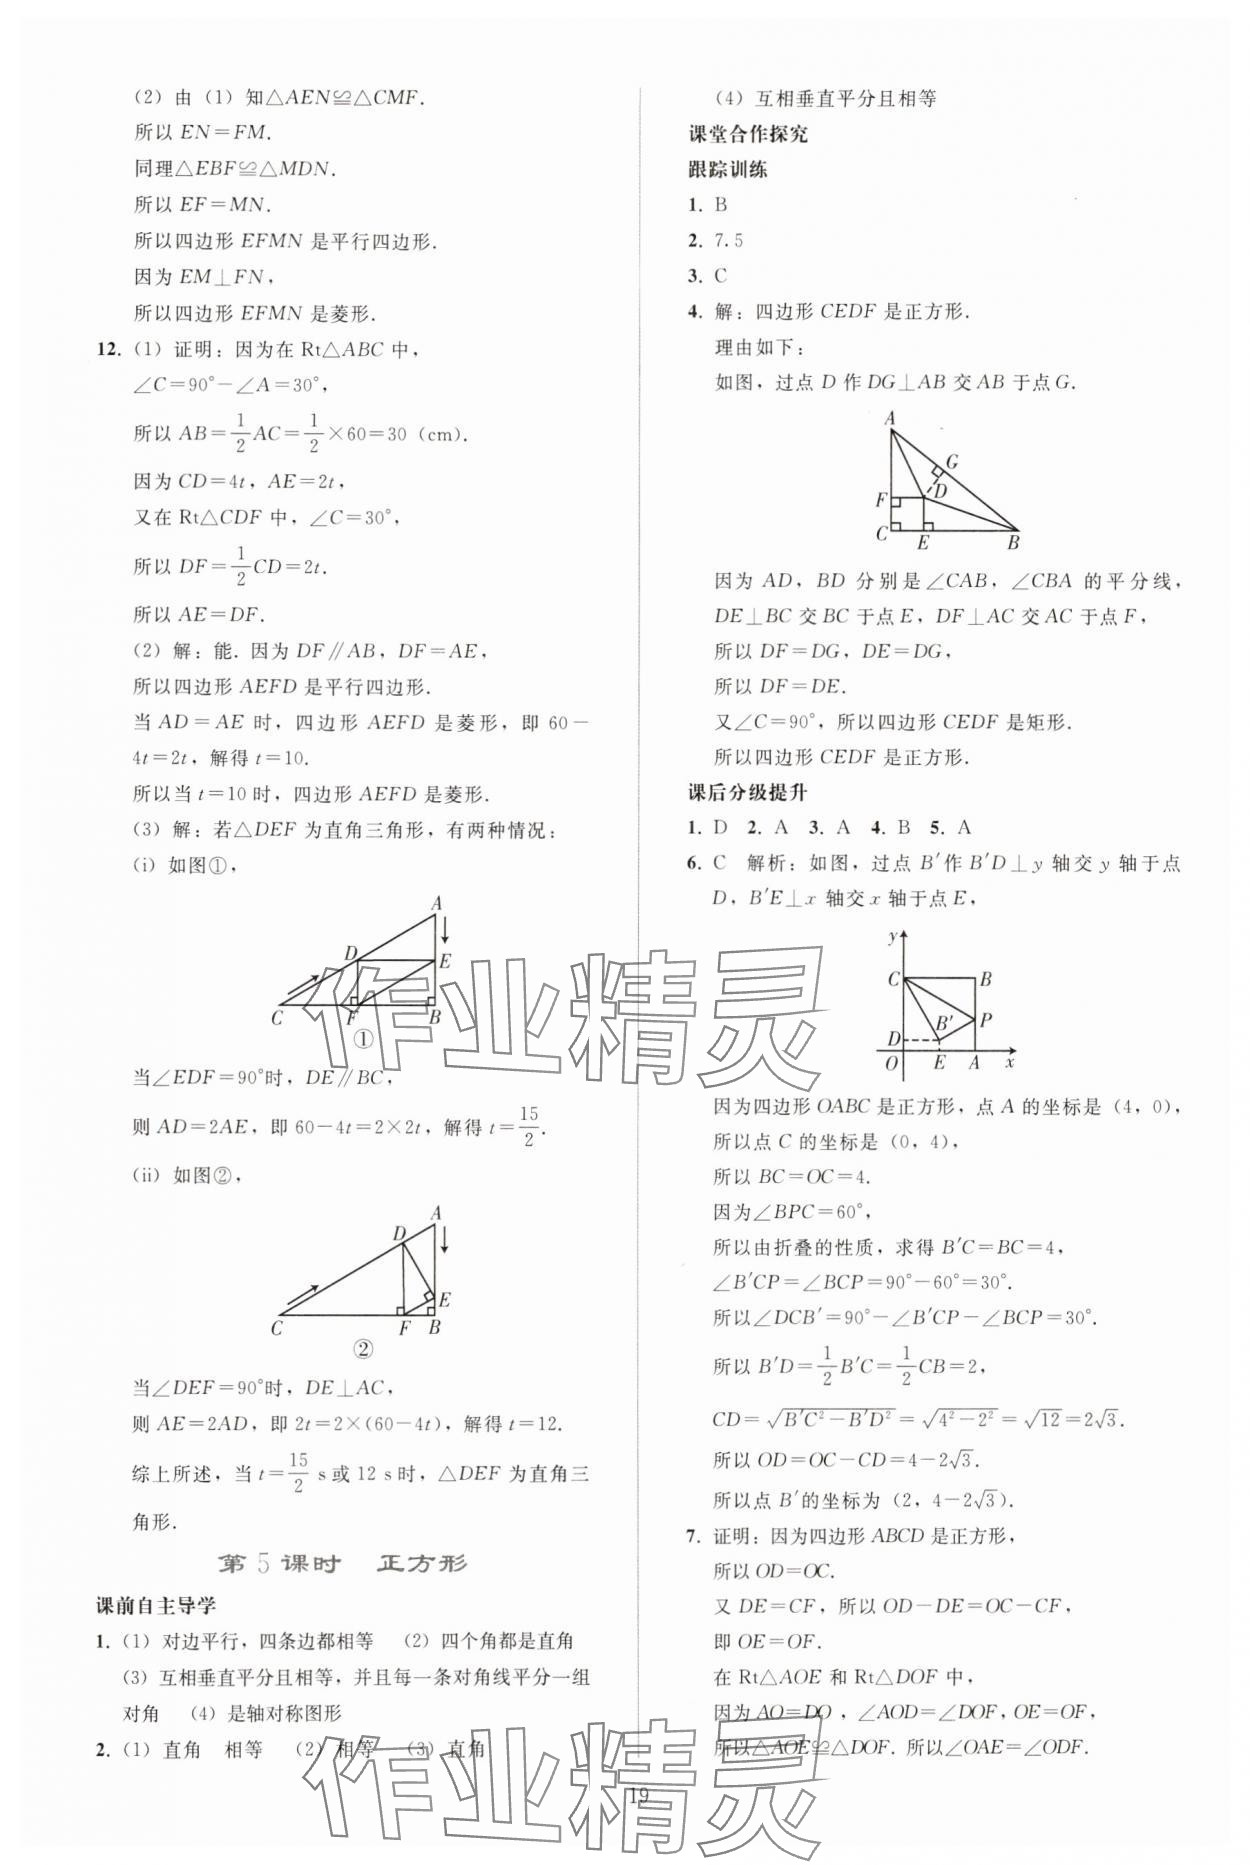 (2) 由 (1) 知△AEN≌△CMF.
所以 EN=FM.
同理△EBF≌△MDN.
所以 EF=MN.
所以四边形 EFMN 是平行四边形.
因为 EM⊥FN,
所以四边形 EFMN 是菱形.
12. (1) 证明：因为在 Rt△ABC 中,
∠C=90°-∠A=30°,
所以 AB=1/2 AC=1/2×60=30 (cm).
因为 CD=4t, AE=2t,
又在 Rt△CDF 中, ∠C=30°,
所以 DF=1/2 CD=2t.
所以 AE=DF.
(2) 解：能. 因为 DF∥AB, DF=AE,
所以四边形 AEFD 是平行四边形.
当 AD=AE 时, 四边形 AEFD 是菱形, 即 60-
4t=2t, 解得 t=10.
所以当 t=10 时, 四边形 AEFD 是菱形.
(3) 解：若△DEF 为直角三角形, 有两种情况：
(i) 如图①,
A
D
E
C
F
B
①
当∠EDF=90°时, DE∥BC,
则 AD=2AE, 即 60-4t=2×2t, 解得 t=15/2.
(ii) 如图②,
A
D
E
C
F
B
②
当∠DEF=90°时, DE⊥AC,
则 AE=2AD, 即 2t=2×(60-4t), 解得 t=12.
综上所述, 当 t=15/2 s 或 12 s 时, △DEF 为直角三
角形.
第 5 课时 正方形
课前自主导学
1. (1) 对边平行, 四条边都相等 (2) 四个角都是直角
(3) 互相垂直平分且相等, 并且每一条对角线平分一组
对角 (4) 是轴对称图形
2. (1) 直角 相等 (2) 相等 (3) 直角
(4) 互相垂直平分且相等
课堂合作探究
跟踪训练
1. B
2. 7.5
3. C
4. 解：四边形 CEDF 是正方形.
理由如下：
如图, 过点 D 作 DG⊥AB 交 AB 于点 G.
A
G
D
F
C
E
B
因为 AD, BD 分别是∠CAB, ∠CBA 的平分线,
DE⊥BC 交 BC 于点 E, DF⊥AC 交 AC 于点 F,
所以 DF=DG, DE=DG,
所以 DF=DE.
又∠C=90°, 所以四边形 CEDF 是矩形.
所以四边形 CEDF 是正方形.
课后分级提升
1. D 2. A 3. A 4. B 5. A
6. C 解析：如图, 过点 B′作 B′D⊥y 轴交 y 轴于点
D, B′E⊥x 轴交 x 轴于点 E,
y
C
B
B′
P
D
O
E
A
x
因为四边形 OABC 是正方形, 点 A 的坐标是 (4, 0),
所以点 C 的坐标是 (0, 4),
所以 BC=OC=4.
因为∠BPC=60°,
所以由折叠的性质, 求得 B′C=BC=4,
∠B′CP=∠BCP=90°-60°=30°.
所以∠DCB′=90°-∠B′CP-∠BCP=30°.
所以 B′D=1/2 B′C=1/2 CB=2,
CD=√(B′C²-B′D²)=√(4²-2²)=√12=2√3.
所以 OD=OC-CD=4-2√3.
所以点 B′的坐标为 (2, 4-2√3).
7. 证明：因为四边形 ABCD 是正方形,
所以 OD=OC.
又 DE=CF, 所以 OD-DE=OC-CF,
即 OE=OF.
在 Rt△AOE 和 Rt△DOF 中,
因为 AO=DO, ∠AOD=∠DOF, OE=OF,
所以△AOE≌△DOF. 所以∠OAE=∠ODF.
19
作业精灵
作业精灵